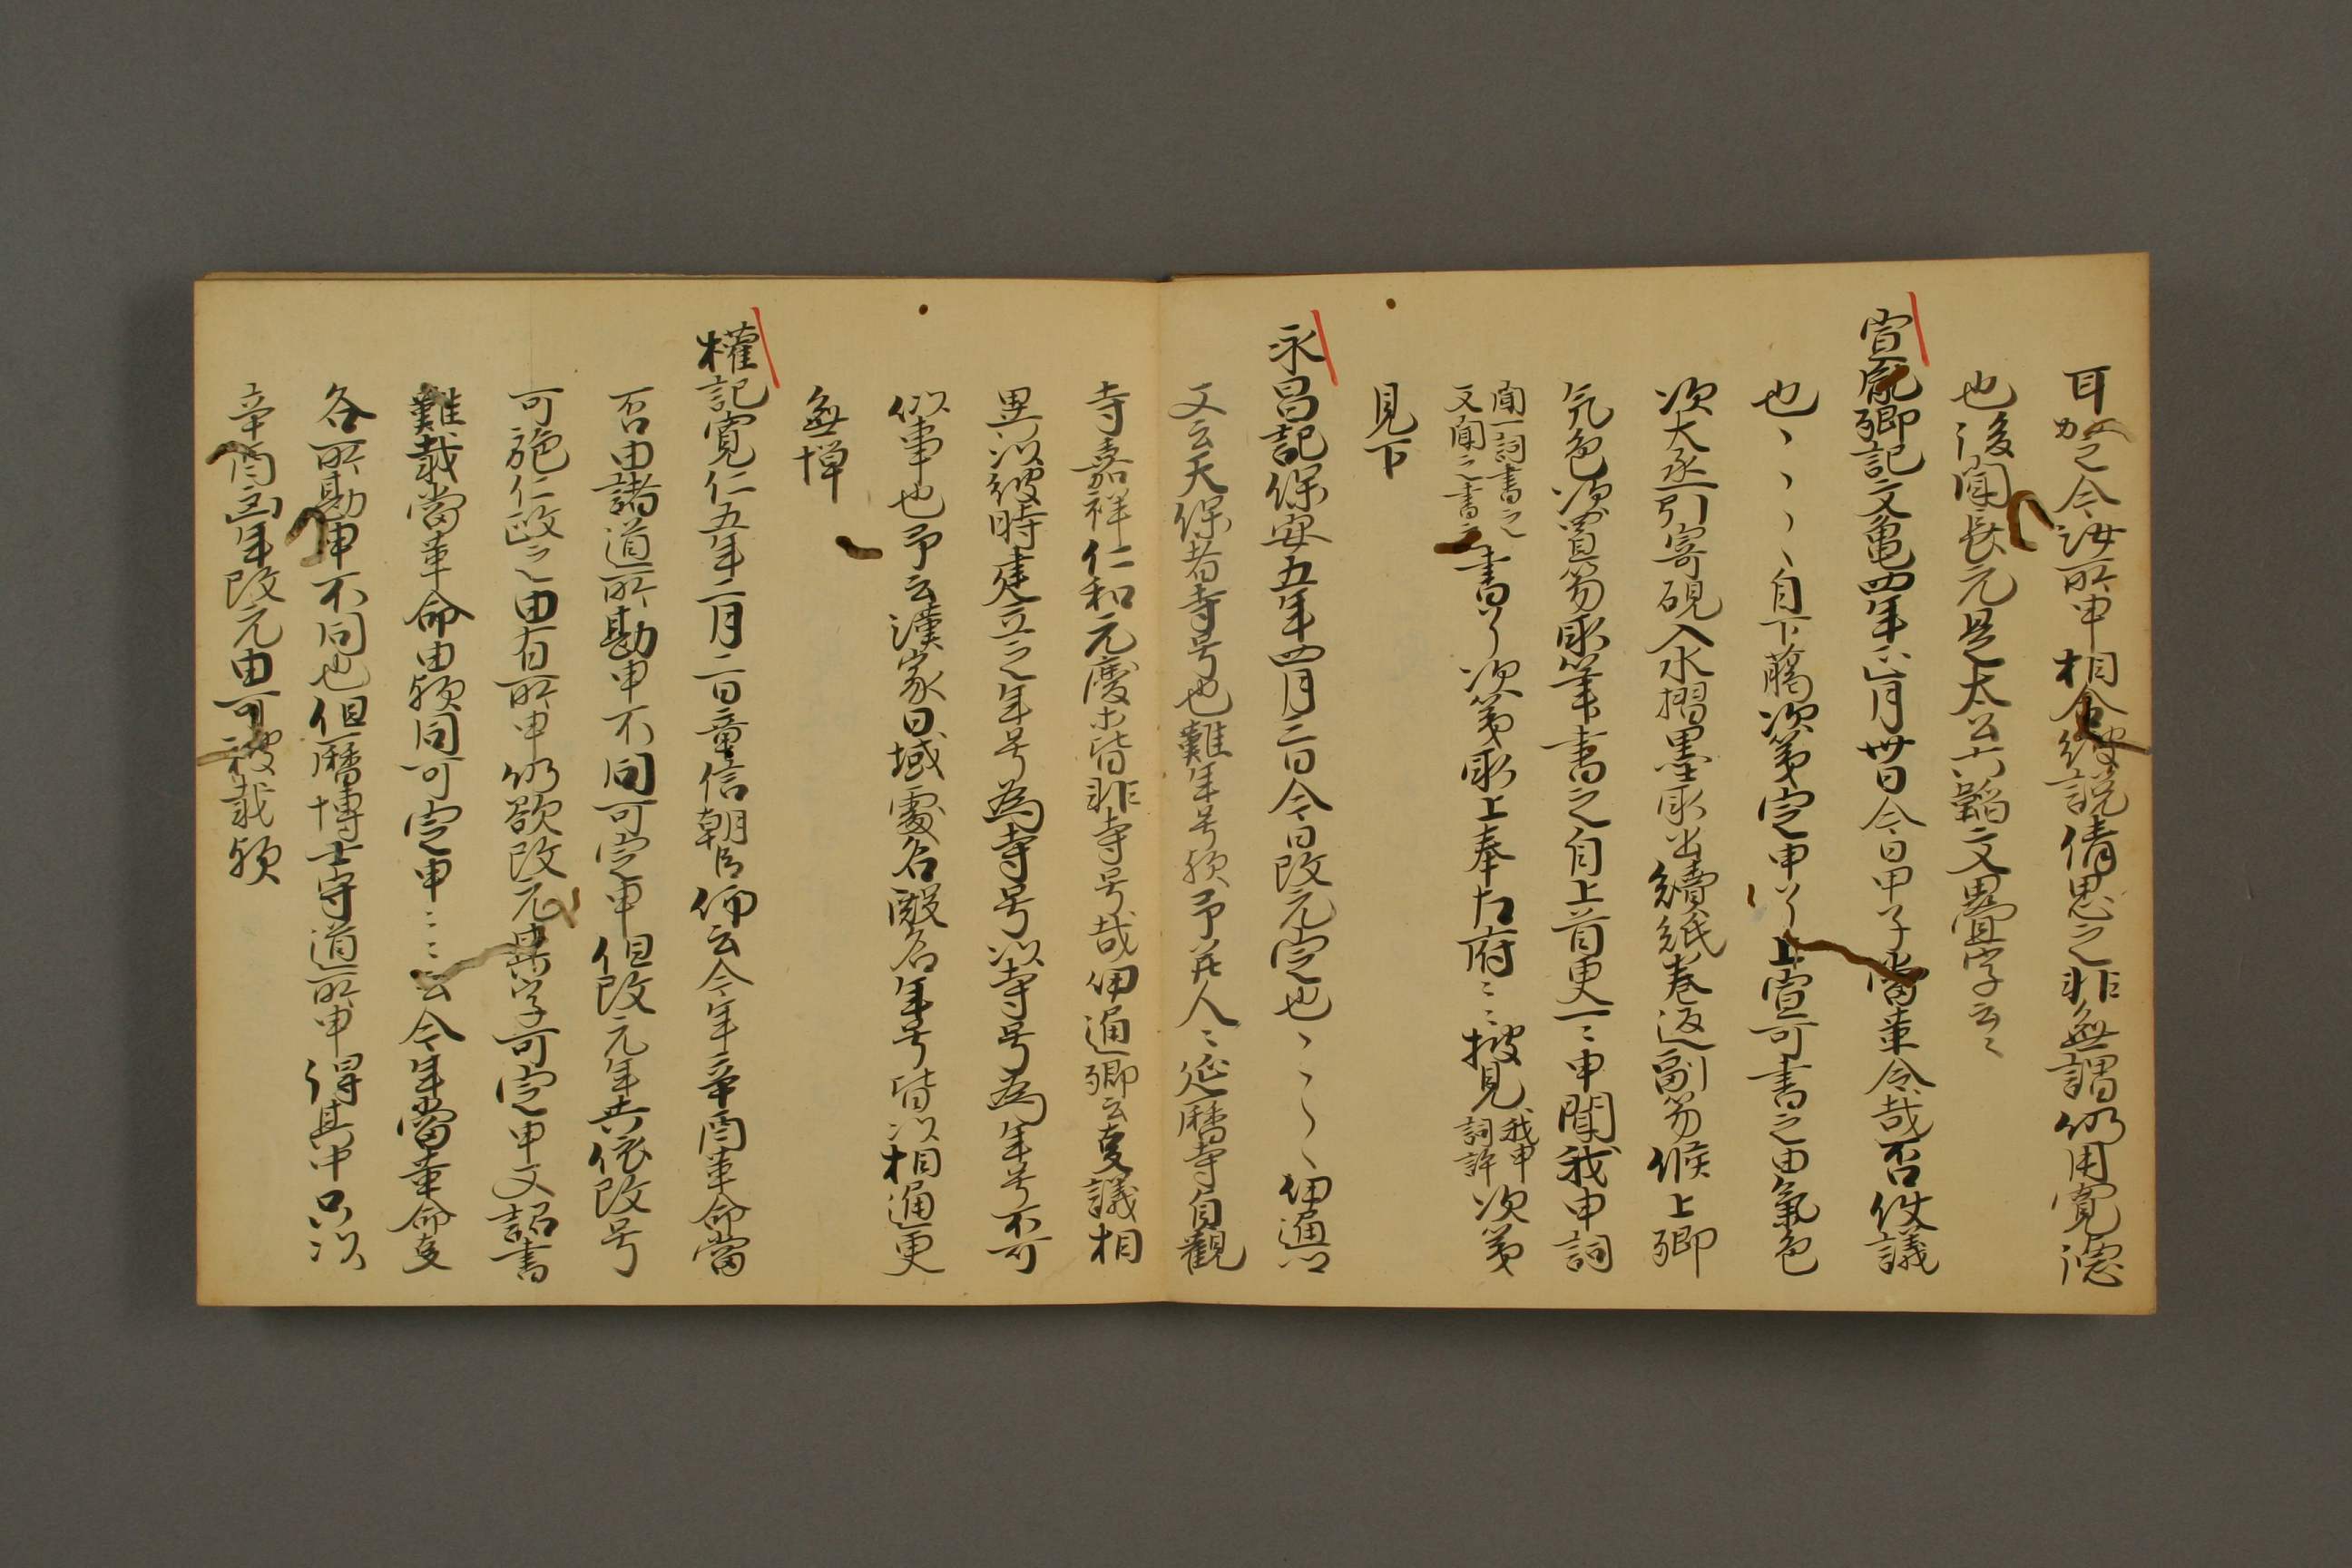 耳加之今汝所申相合彼説倩思之非無謂仍用寛徳
也後聞長元是太公六韜文畳字云々
宣胤卿記文亀四年二月卅日今日甲子當革令哉否仗議
也、、、、自下﨟次第定申了上宣可書之由氣色
次大丞引寄硯入水摺墨取出續紙巻返副笏候上卿
氣色次置笏取筆書之自上首更一々申聞我申詞
聞一詞書之
又聞之書之
書了次第取上奉左府々披見
我申
詞許
次第
見下
永昌記保安五年四月三日今日改元定也、、、、伊通卿
又云天保者寺号也難年号歟予并人々延暦寺貞觀
寺嘉祥仁和元慶ホ皆非寺号哉伊通卿云事議相
異以彼時建立之年号為寺号以寺号為年号不可
似事也予云漢家日域處名殿名年号皆以相通更
無憚
權記寛仁五年二月二日章信朝臣仰云今年辛酉革命當
否由諸道所勘申不同可定申但改元年共依改号
可施仁政之由有所申仍欲改元其字可定申又詔書
難載當革命由歟同可定申々々云今年當革命事
各所勘申不同也但暦博士守道所申得其中只以
辛酉年改元由可被載歟